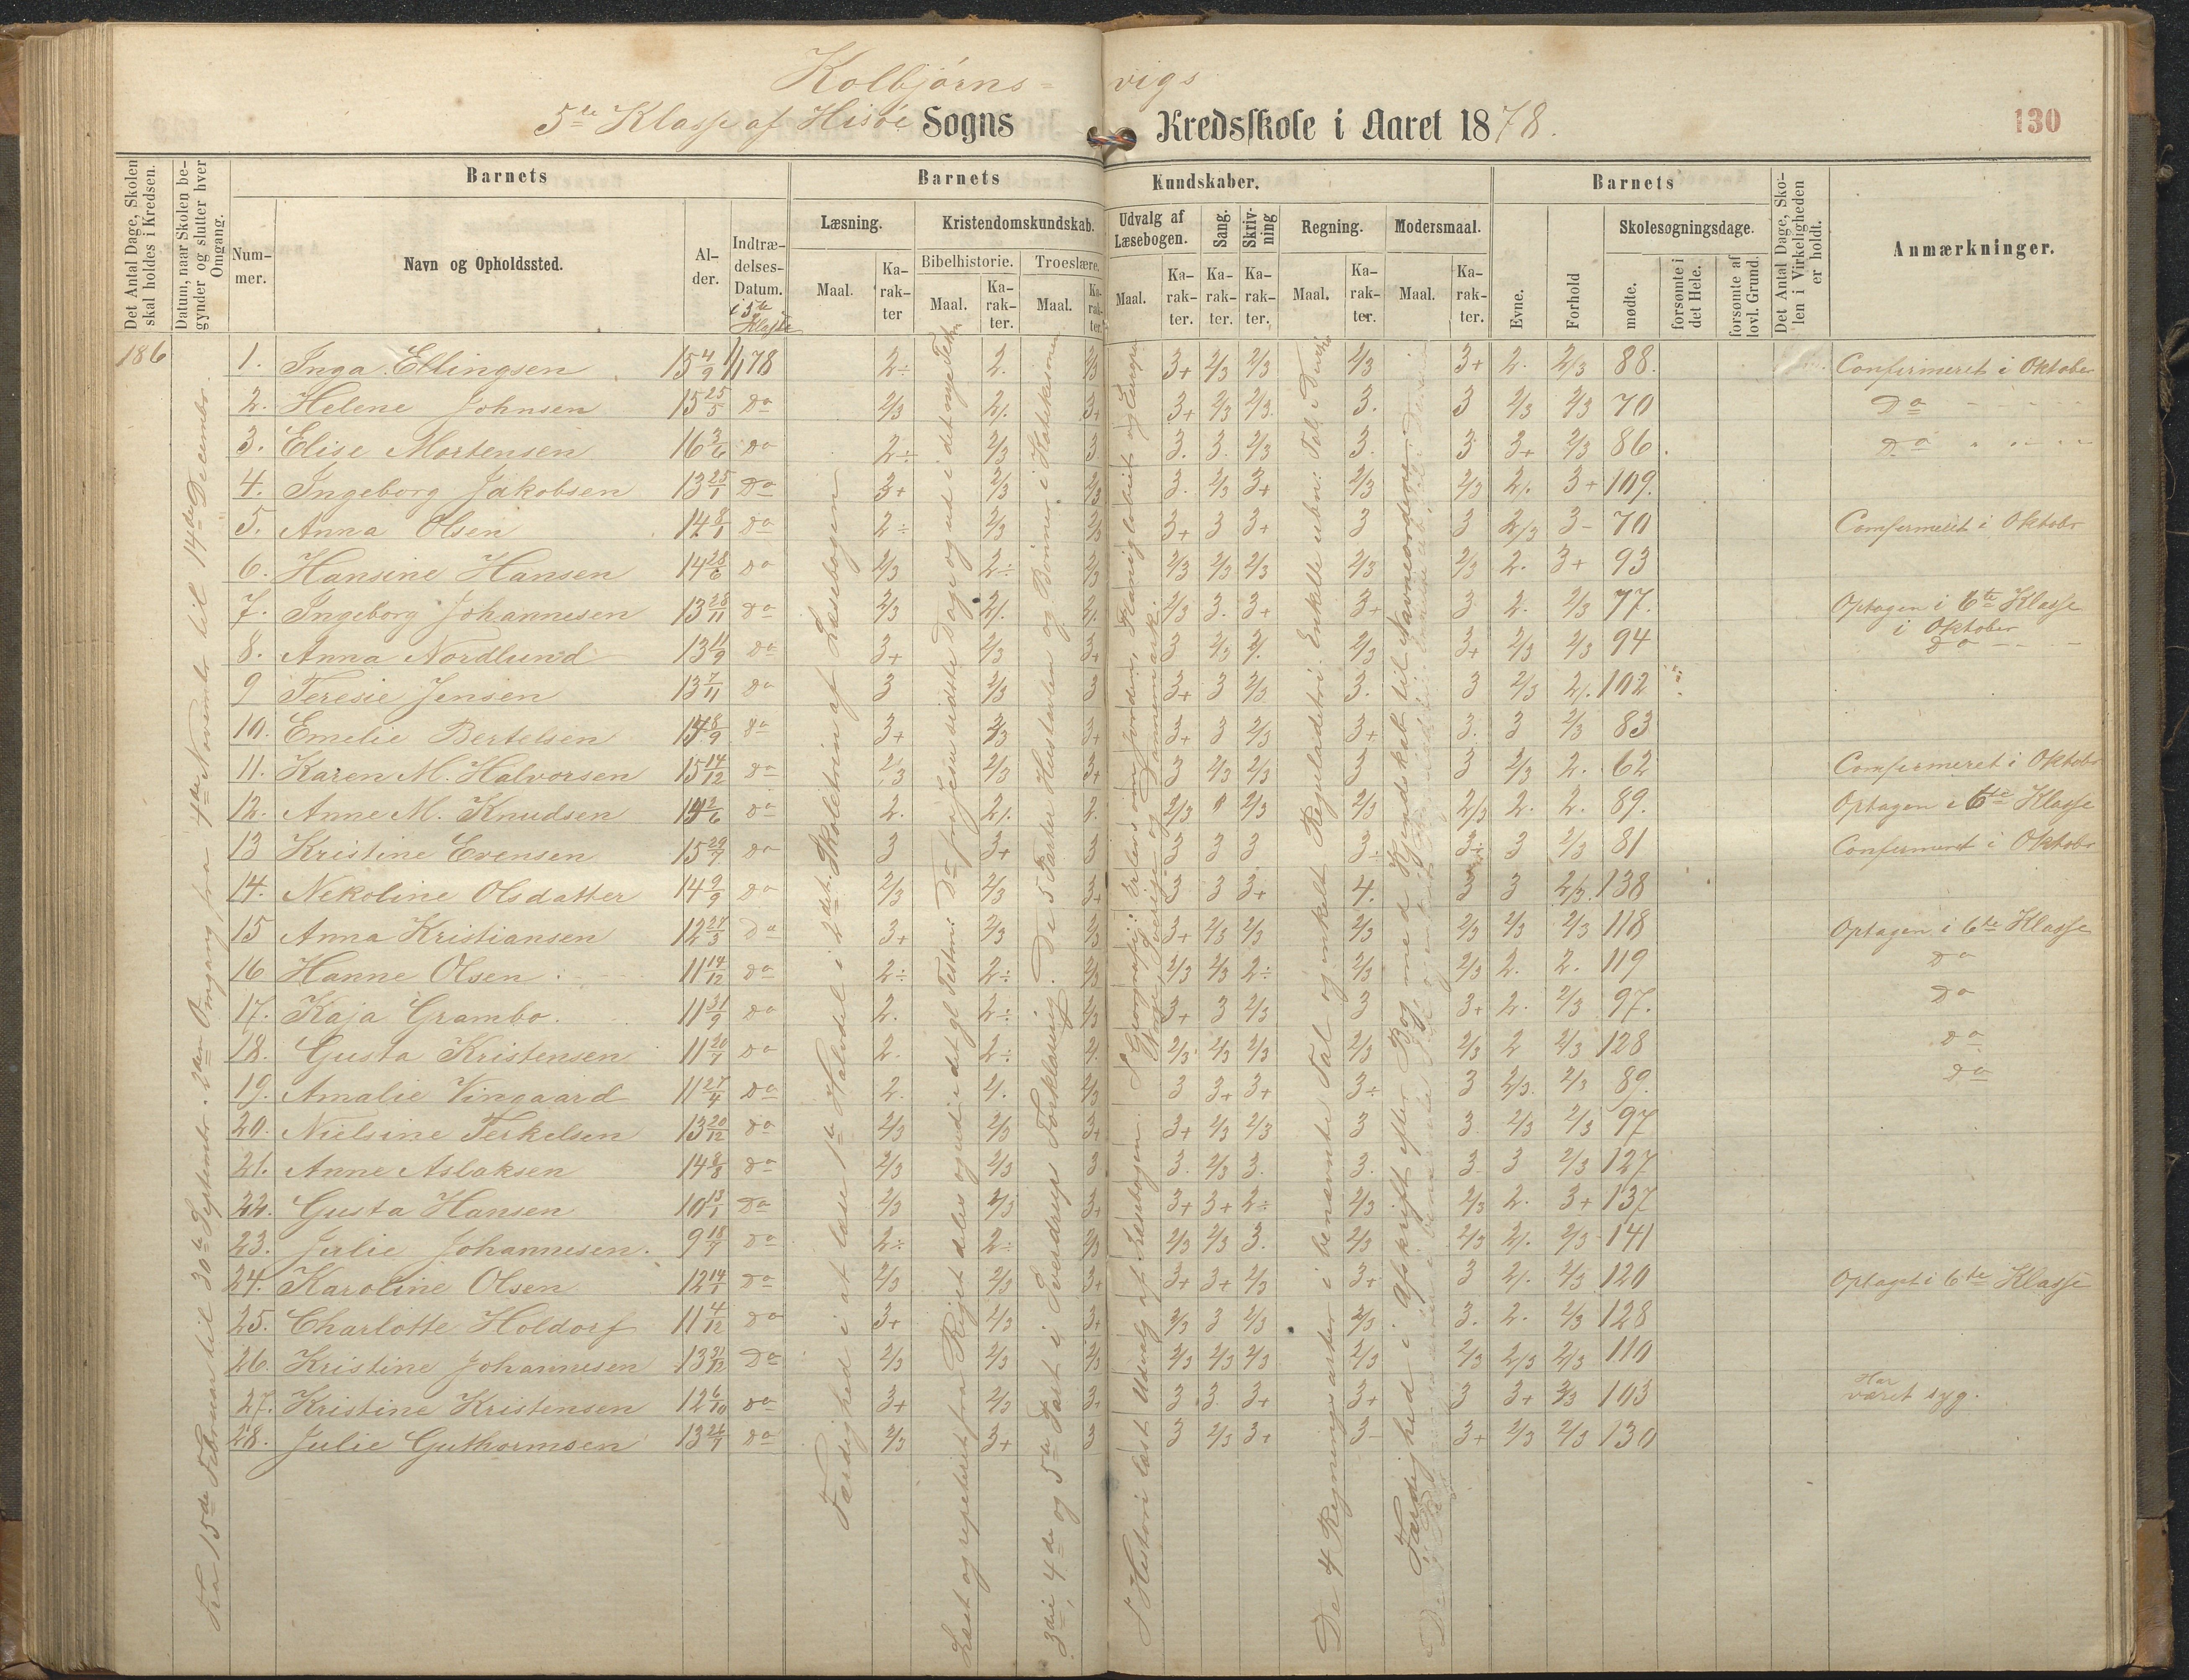 Kolbjørns= vigs
5te Klasse af Hisöe Sogns Kredsskole i Aaret 1878.
130
Det Antal Dage, Skolen skal holdes i Kredsen.
Datum, naar Skolen begynder og slutter hver Omgang.
Barnets
Barnets Kundskaber.
Barnets
Det Antal Dage, Skolen i Virkeligheden er holdt.
Anmærkninger.
Nummer.
Navn og Opholdssted.
Alder.
Indtrædelses-Datum. i 5te Klasse
Læsning.
Kristendomskundskab.
Udvalg af Læsebogen.
Sang.
Skrivning
Regning.
Modersmaal.
Evne.
Forhold
Skolesøgningsdage.
Bibelhistorie.
Troeslære.
Maal.
Karakter
Maal.
Karakter.
Maal.
Karakter.
Maal.
Karakter.
Karakter.
Karakter.
Maal.
Karakter.
Maal.
Karakter.
mødte.
forsømte i det Hele.
forsømte af lovl. Grund.
186
Fra 15de Februar til 30te Septembr. 2den Omgang fra 4de Novembr til 14de Decembr.
Færdighed i at læse 1te Halvdel i 2det Skoletrin af Læsebogen
1. Inga Ellingsen 15 4/9 1/1 78 2÷ 2. 2/3 3+ 2/3 2/3 2/3 3+ 2. 2/3 88. Confirmeret i Oktober
2. Helene Johnsen 15 25/5 Do 2/3 2/. 3+ 3+ 2/3 2/3. 3. 3 2/3 2/3 70 Do
3. Elise Mortensen 16 3/6 do 2÷ 2/3 3 3. 3. 2/3 3. 3 3+ 2/3 86. Do
4. Ingeborg Jakobsen 13 25/1 Do 3+ 2/3 2/3 3. 2/3 3+ 2/3 2/3 2/. 3+ 109.
5. Anna Olsen 14 8/1 do 2÷ 2/3 2/3 3+ 3 3+ 3 3 2/3 3- 70 Comfermeret i Oktobr
6. Hansine Hansen 14 28/6 do 2/3 2÷ 2/3 2/3 2/3 2/3 2/3 2/3 2. 3+ 93
7. Ingeborg Johannesen 13 28/11 do 2/3 2/. 2/. 2/3 3. 3+ 3+ 3 2. 2/3 77. Optagen i 6te Klasse i Oktober
8. Anna Nordlund 13 11/9 do 3+ 2/3 3+ 3 2/3 2/. 2/3 3+ 2/3 2/3 94 Do
9 Teresie Jensen 13 7/11 do 3 2/3 3 3+ 3 2/3 3. 3 2/3 2/. 102
10. Emelie Bertelsen 8/9 do 3+ 2/3 3+ 3+ 3 2/3 3+ 3. 3 2/3 83
11. Karen M. Halvorsen 15 14/12 do 2/3 2/3 3+ 3 2/3 2/3 3 3 2/3 2. 62 Comfermeret i Oktobr
12. Anne M. Knudsen 2/6 do 2. 2/. 2. 2/3 2/3 2/3 2/3 2. 2. 89. Optagen i 6te Klasse
13 Kristine Evensen 15 29/7 do 3 3+ 3 3 3 3 3÷ 3÷ 3 2/3 81 Confermeret i Oktobr
14. Nekoline Olsdatter 14 9/9 do 2/3 2/3 3+ 3 3 3+ 4. 3 3 2/3. 138
15 Anna Kristiansen 12 27/3 Do 3+ 2/3 2/3 3+ 2/3 2/3 2/3 2/3 2/3 2/3 118 Optagen i 6te Klasse
16 Hanne Olsen 11 14/12 do 2÷ 2÷ 2/3 2/3 2/3 2÷ 2/3 2/3 2. 2. 119 Do
17. Kaja Grambo. 11 31/9 do 2. 2÷ 2/3 3+ 3 2/3 3 3+ 2. 2/3 97. Do
18. Gusta Kristensen 11 20/7 do 2. 2÷ 2. 2/3 2/3 2/3 2/3 2/3 2 2/3 128 Do
19. Amalie Vingaard 11 27/4 do 2. 2/. 2/3 3 3+ 3+ 3÷ 3 2/3. 2/3 89. Do
20. Nielsine Terkelsen 13 20/12 do 2/3 2/3 3+ 3+ 2/3 2/3 3 3 2/3 2/3 97
21. Anne Aslaksen 14 8/8 do 2/3 2/3 3 3. 2/3 3. 3. 3. 3 2/3 127
22. Gusta Hansen 10 13/1 Do 2/3 2/3 3+ 3+ 3+ 2÷ 2/3 2/3 2. 3+ 137
23. Julie Johannesen. 9 18/7 do 2÷ 2÷ 2/3 2/3 2/3 3. 2/3 2/3 2/. 2/3 141
24. Karoline Olsen 12 14/1 Do 2/3 2/3 3+ 3+ 3+ 2/3 3+ 3 2/. 2/3 120 Optaget i 6te Klasse
25. Charlotte Holdorf 11 4/12 do 3+ 2/3 3+ 2/3 3 2/3 2/3 3. 2. 2/3 128
26. Kristine Johannesen 13 31/12 Do 2/3 2/3 2/3 2/3 2/3 2/3 2/3 2/3 2/3 2/3 110
27. Kristine Kristensen 12 6/10 do 3+ 2/3 3+ 3 3. 3+ 3+ 3 3+ 2/3 103 Har været syg.
28. Julie Guthormsen 13 26/7 do 2/3 3+ 3 3 2/3 3+ 3- 3+ 2/3 2/3 130
Læst og repeteret fra Riget deles og ud i det gl Testm: Do fra Jesu sidste Dage og ud i det nye Testm
3die, 4de og 5te Part i Sverdrups Forklaring. De 5 Parter Hustavlen og Bönner i Katekismen
I Histori læst Udvalg af Læsebogen. I Geografi: Orlers om Jorden, Planiglobiet og Europa
Norge, Sverige og Dannemark.
De 4 Regningsarter i benævnte Tal og enkelt Reguladetri. Enkelte ubn: Tal i Decim
Færdighed i Afskrift efter Bog med Kjendskab til Navneordene.